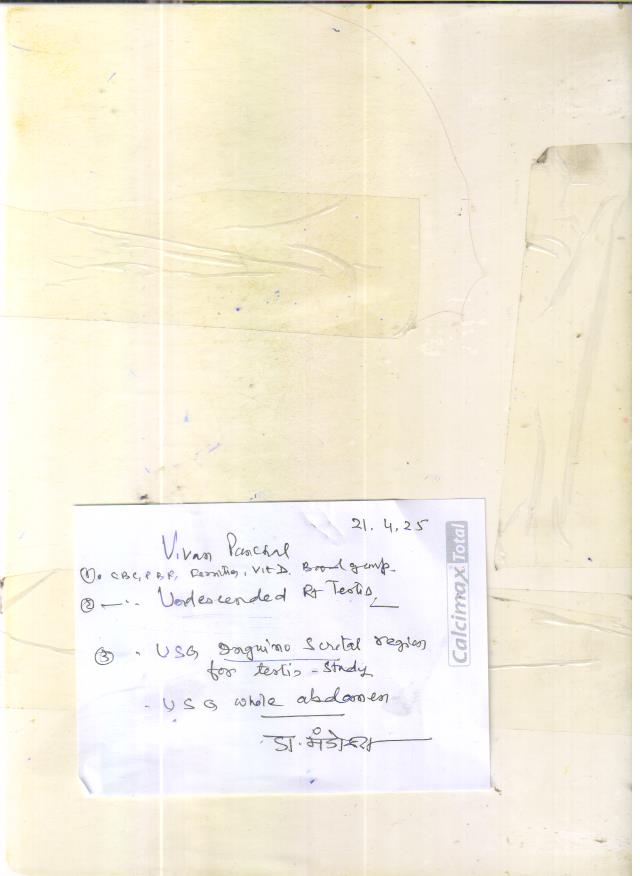 21.4.25
Vivan Panchal
① CBC, PBF, Ferritin, Vit D. Blood group
② Undescended Rt Testis
③ USG Inguino Scrotal region
for testis - study
USG whole abdomen
डा.
Calcimax Total